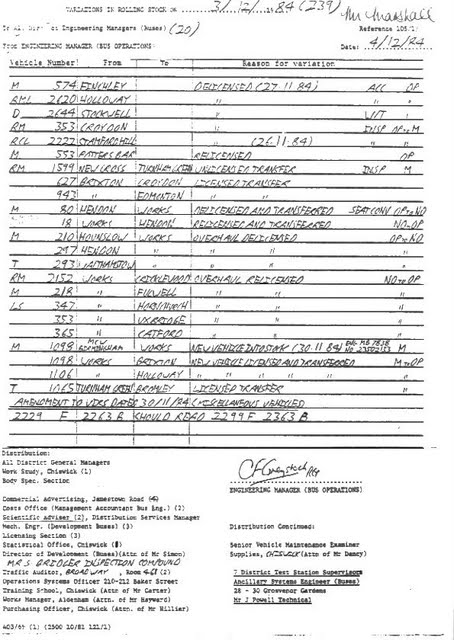 VARIATIONS IN ROLLING STOCK ON 3/12/84 (239)
Mr Marshall
To All District Engineering Managers (Buses) (20)
Reference 105/1
From ENGINEERING MANAGER (BUS OPERATIONS)
Date: 4/12/84
Vehicle Number From To Reason for variation
M 574 FINCHLEY DELICENSED (27.11.84) ACC OP
RML 2620 HOLLOWAY " " "
D 2644 STOCKWELL " V/T "
RM 353 CROYDON " INSP OP to M
RCL 2222 STAMFORD HILL " (26.11.84) " "
M 553 POTTERS BAR RELICENSED OP
RM 1599 NEW CROSS TURNHAM GREEN UNLICENSED TRANSFER INSP M
627 BRIXTON CROYDON LICENSED TRANSFER
943 " EDMONTON " "
M 80 HENDON WORKS DELICENSED AND TRANSFERRED SEAT CONV OP to NO
18 WORKS HENDON RELICENSED AND TRANSFERRED NO to OP
M 210 HOUNSLOW WORKS OVERHAUL DELICENSED OP to NO
297 HENDON " " " "
T 293 WALTHAMSTOW " " " "
RM 2152 WORKS CRICKLEWOOD OVERHAUL RELICENSED NO to OP
M 218 " FULWELL " " "
LS 347 " HORNCHURCH " " "
353 " UXBRIDGE " " "
365 " CATFORD " " "
M 1098 MCW BIRMINGHAM WORKS NEW VEHICLE INTO STOCK (30.11.84) M
1098 WORKS BRIXTON NEW VEHICLE LICENSED AND TRANSFERRED M to OP
1106 " HOLLOWAY " " " "
T 1065 TURNHAM GREEN BROMLEY LICENSED TRANSFER
AMENDMENT TO VIRS DATED 30/11/84 (MISCELLANEOUS VEHICLES)
2229 F 2263 B SHOULD READ 2299 F 2363 B
Distribution:
All District General Managers
Work Study, Chiswick (1)
Body Spec. Section
ENGINEERING MANAGER (BUS OPERATIONS)
Commercial Advertising, Jamestown Road
Costs Office (Management Accountant Bus Eng.) (2)
Scientific Adviser (2), Distribution Services Manager
Mech. Engr. (Development Buses) (3)
Licensing Section (3)
Statistical Office, Chiswick
Director of Development (Buses)(Attn of Mr Simon)
MR S GRIDLER INSPECTION COMPOUND
Traffic Auditor, BROADWAY, Room
Operations Systems Officer 210-212 Baker Street
Training School, Chiswick (Attn of Mr Carter)
Works Manager, Aldenham (Attn. of Mr Hayward)
Purchasing Officer, Chiswick (Attn. of Mr Hillier)
Distribution Continued:
Senior Vehicle Maintenance Examiner
Supplies, CHISWICK (Attn of Mr Dancy)
7 District Test Station Supervisors
Ancillary Systems Engineer (Buses)
28 - 30 Grosvenor Gardens
Mr J Powell Technical
403/6t (1) (2500 10/81 121/1)